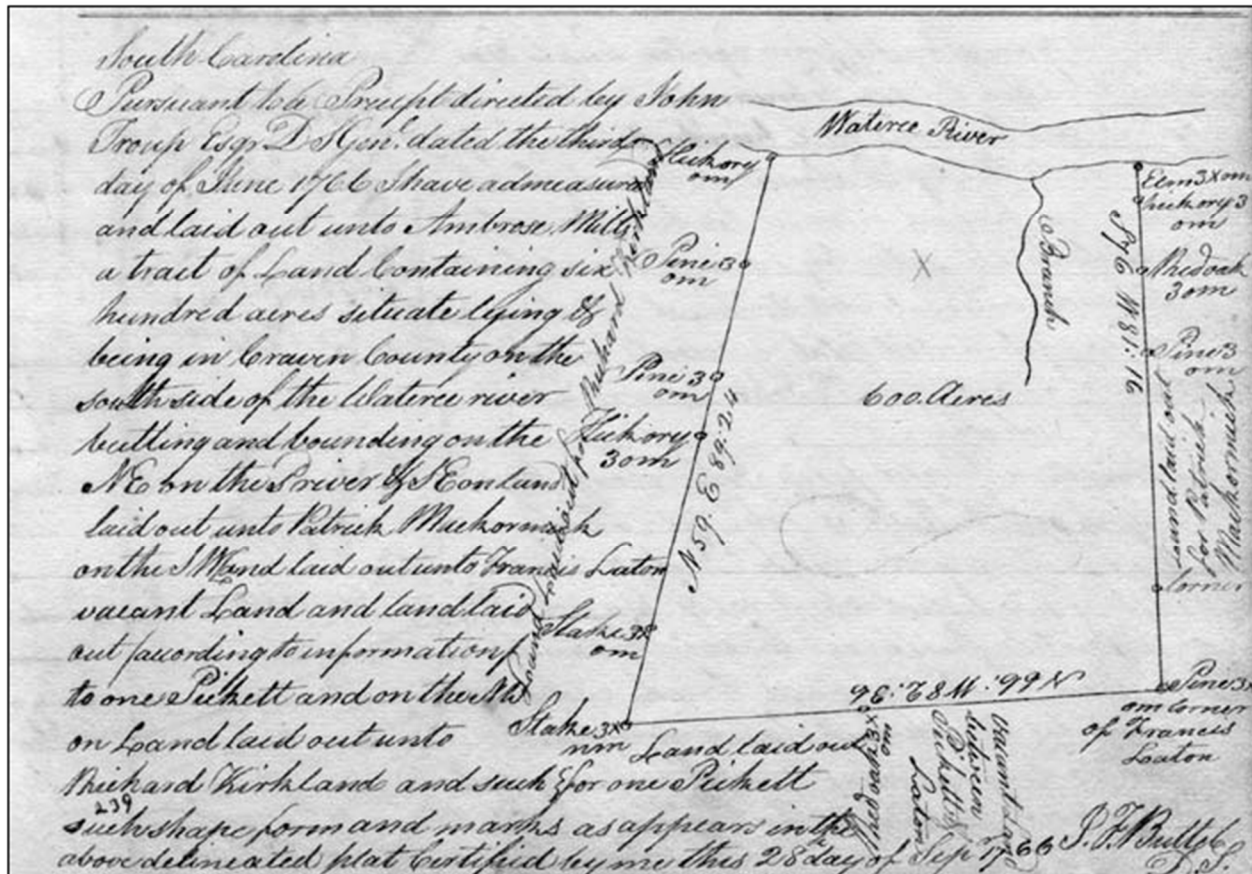 South Carolina
Pursuant to a Precept directed by John
Troup Esqr D S Genl. dated the third
day of June 1766 I have admeasured
and laid out unto Ambrose Mills
a tract of Land Containing six
hundred acres situate lying &
being in Craven County on the
south side of the Wateree river
butting and bounding on the
NE on the sriver & SE on land
laid out unto Patrick Mackormick
on the SW land laid out unto Francis Laton
vacant Land and land laid
out (according to information)
to one Pickett and on the NW
on Land laid out unto
Richard Kirkland and such
239
such shape form and marks as appears in the
above delineated plat Certified by me this 28th day of Sepr 1766
Wateree River
Branch
600 Acres
Hickory
om
Pine 3
om
Pine 3
om
Hickory
3 om
Stake 3x
om
Stake 3x
nm
Land laid out for Richard Kirkland
N 59. E 89:24
Elm 3x om
Hickory 3
om
Redoak
3 om
Pine 3
om
Corner
S 76 W 81:16
Land laid out
for Patrick
Mackormick
Pine 3x
om Corner
of Francis
Laton
N 66: W 82:36
Land laid out
for one Pickett
Redoak 3x
om
Vacant Land
between
Pickett &
Laton
D. S.